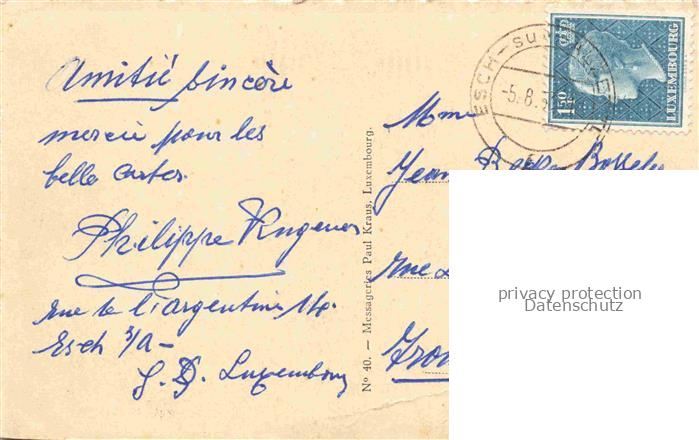 Amitié sincère
mercie pour les
belle cartes
Philippe
rue de l'argentine 14.
Esch s/A -
G. D. Luxembourg
No 40. — Messageries Paul Kraus, Luxembourg.
ESCH-SUR-ALZETTE
-5.8.
1F50
LUXEMBOURG
Mme
Jean
rue
privacy protection
Datenschutz